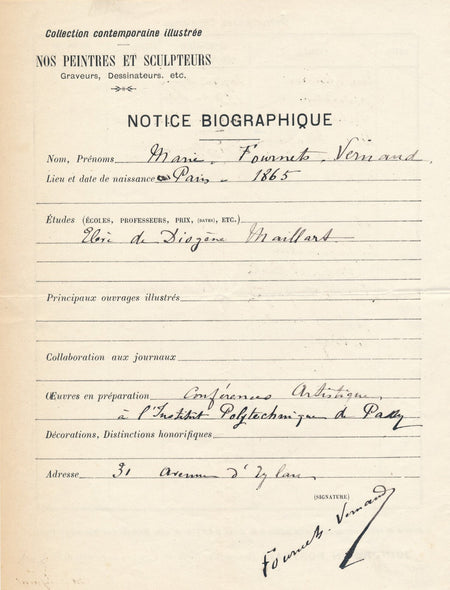 Collection contemporaine illustrée
NOS PEINTRES ET SCULPTEURS
Graveurs, Dessinateurs. etc.
NOTICE BIOGRAPHIQUE
Nom, Prénoms Marie - Fournets Vernaud.
Lieu et date de naissance à Paris - 1865
Études (ÉCOLES, PROFESSEURS, PRIX, (DATES), ETC.)
Elève de Diogène Maillart
Principaux ouvrages illustrés
Collaboration aux journaux
Œuvres en préparation Conférences Artistiques
à l'Institut Polytechnique de Passy
Décorations, Distinctions honorifiques
Adresse 31 avenue d'Eylau
(SIGNATURE)
Fournets-Vernaud